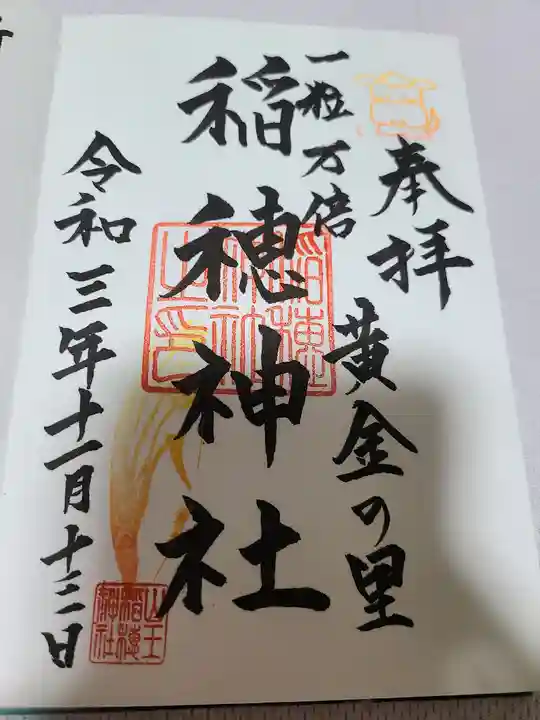 奉拝
黄金の里
一粒万倍
稲穂神社
稲穂神社之印
令和三年十一月十三日
山王稲穂神社